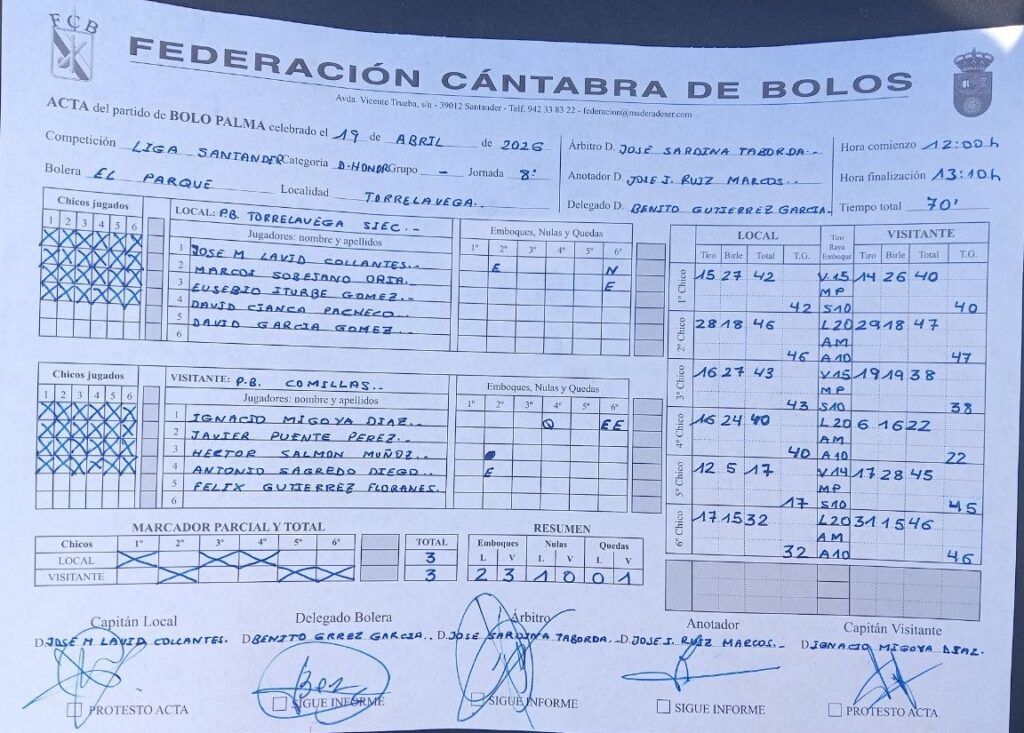 FCB
FEDERACIÓN CÁNTABRA DE BOLOS
Avda. Vicente Trueba, s/n - 39012 Santander - Telf. 942 33 83 22 - federacion@maderadeser.com
ACTA del partido de BOLO PALMA celebrado el 19 de ABRIL de 2026
Competición LIGA SANTANDER Categoría D.HONOR Grupo - Jornada 8ª
Bolera EL PARQUE Localidad TORRELAVEGA..
Árbitro D. JOSÉ SARDINA TABORDA.-
Anotador D. JOSE I. RUIZ MARCOS..
Delegado D. BENITO GUTIERREZ GARCIA.
Hora comienzo 12:00 h
Hora finalización 13:10 h
Tiempo total 70'
Chicos jugados
1 2 3 4 5 6
LOCAL: P.B. TORRELAVEGA SIEC.-
Jugadores: nombre y apellidos
Emboques, Nulas y Quedas
1º 2º 3º 4º 5º 6º
1 JOSE M LAVID COLLANTES.. E N
2 MARCOS SOBEJANO ORIA. E
3 EUSEBIO ITURBE GOMEZ..
4 DAVID CIANCA PACHECO..
5 DAVID GARCIA GOMEZ..
6
Chicos jugados
1 2 3 4 5 6
VISITANTE: P.B. COMILLAS..
Jugadores: nombre y apellidos
Emboques, Nulas y Quedas
1º 2º 3º 4º 5º 6º
1 IGNACIO MIGOYA DIAZ.. Q EE
2 JAVIER PUENTE PEREZ..
3 HECTOR SALMON MUÑOZ..
4 ANTONIO SAGREDO DIEGO.. E
5 FELIX GUTIERREZ FLORANES.
6
LOCAL Tiro Raya Emboque VISITANTE
Tiro Birle Total T.G. Tiro Birle Total T.G.
1º Chico 15 27 42 V15 14 26 40
MP
42 S10 40
2º Chico 28 18 46 L20 29 18 47
AM
46 A10 47
3º Chico 16 27 43 V15 19 19 38
MP
43 S10 38
4º Chico 16 24 40 L20 6 16 22
AM
40 A10 22
5º Chico 12 5 17 V14 17 28 45
MP
17 S10 45
6º Chico 17 15 32 L20 31 15 46
AM
32 A10 46
MARCADOR PARCIAL Y TOTAL
Chicos 1º 2º 3º 4º 5º 6º TOTAL
LOCAL 3
VISITANTE 3
RESUMEN
Emboques Nulas Quedas
L V L V L V
2 3 1 0 0 1
Capitán Local Delegado Bolera Árbitro Anotador Capitán Visitante
D. JOSE M LAVID COLLANTES. D BENITO GRREZ GARCIA.. D. JOSE SARDINA TABORDA.- D. JOSE I. RUIZ MARCOS.- D. IGNACIO MIGOYA DIAZ.
PROTESTO ACTA SIGUE INFORME SIGUE INFORME SIGUE INFORME PROTESTO ACTA